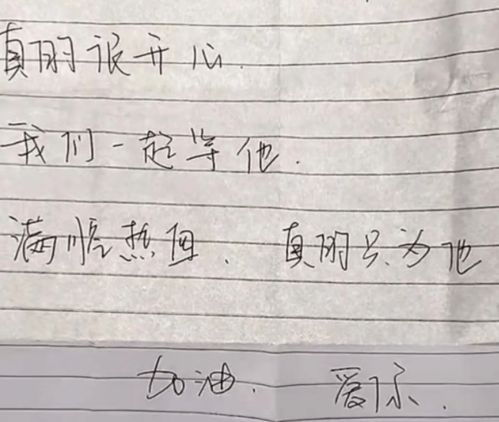 真的很开心.
我们一起等他.
满腔热血. 真的只为他
加油. 爱你.